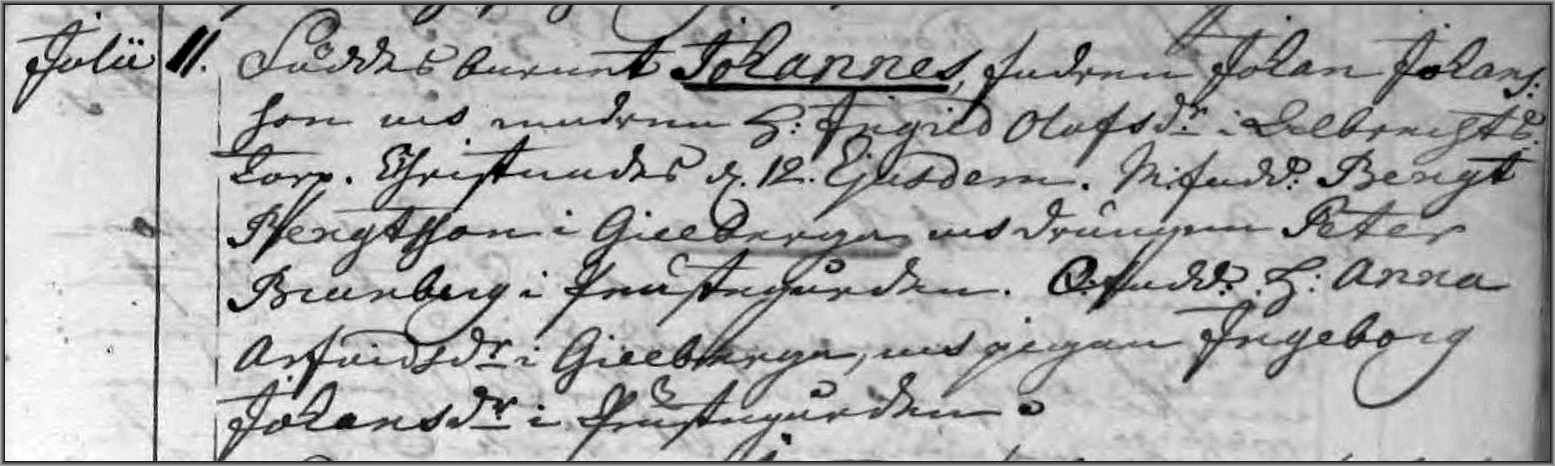 Julii 11. Föddes barnet Johannes, fadren Johan Johans:
son och modren H: Ingrid Olofsdr i
torp. Christnades d. 12. Ejusdem. M.fadd: Bengt
Bengtsson i Gillberga och drängen Peter
Brunberg i Prästegården. Q.fadd: H: Anna
Arfvidsdr i Gillberga, och pigan Ingeborg
Johansdr i Prästegården.